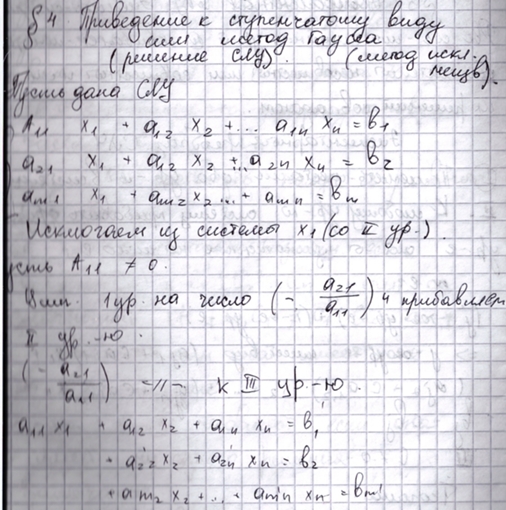 § 4 Приведение к ступенчатому виду
или метод Гаусса
(решение СЛУ). (метод искл.
неизв).
Пусть дана СЛУ
A₁₁ x₁ + a₁₂ x₂ + ... a₁ₙ xₙ = b₁
a₂₁ x₁ + a₁₂ x₂ + ... a₂ₙ xₙ = b₂
aₘ₁ x₁ + aₘ₂ x₂ ... + aₘₙ = bₘ
Исключаем из системы x₁ (со II ур.).
усть A₁₁ ≠ 0.
1 ур. на число (- a₂₁/a₁₁) и прибавляем
II ур.-ю.
(- a₂₁/a₁₁) -//- к III ур-ю.
a₁₁ x₁ + a₁₂ x₂ + a₁ₙ xₙ = b₁'
+ a₂'₂ x₂ + a₂'ₙ xₙ = b₂
+ aₘ₂ x₂ + ... + aₘ'ₙ xₙ = bₘ'